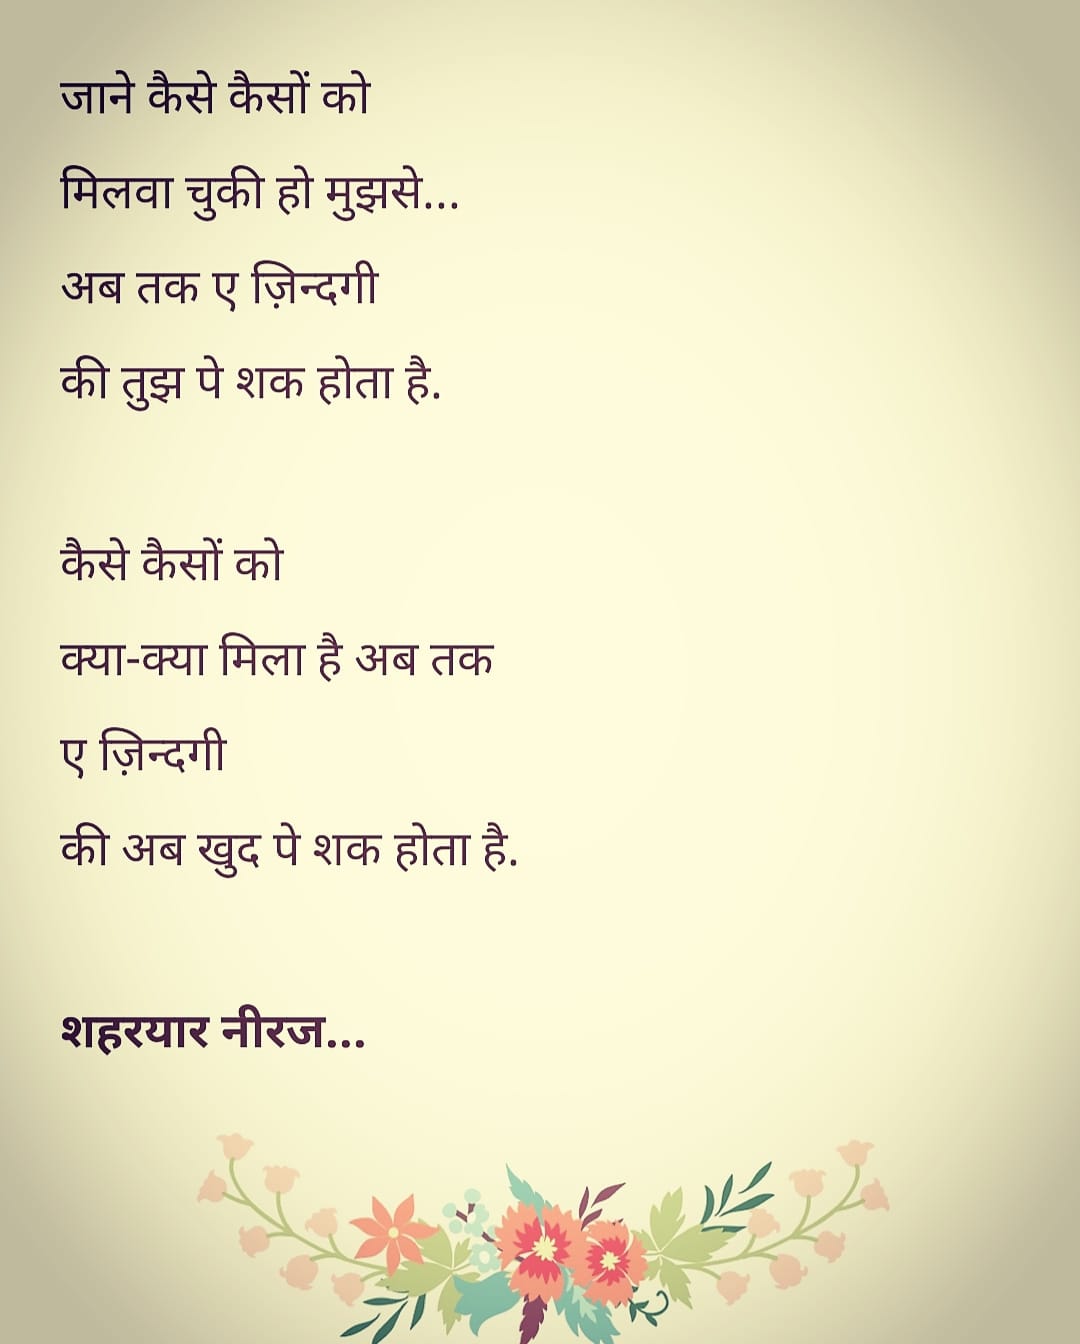 जाने कैसे कैसों को
मिलवा चुकी हो मुझसे...
अब तक ए ज़िन्दगी
की तुझ पे शक होता है.
कैसे कैसों को
क्या-क्या मिला है अब तक
ए ज़िन्दगी
की अब खुद पे शक होता है.
शहरयार नीरज...